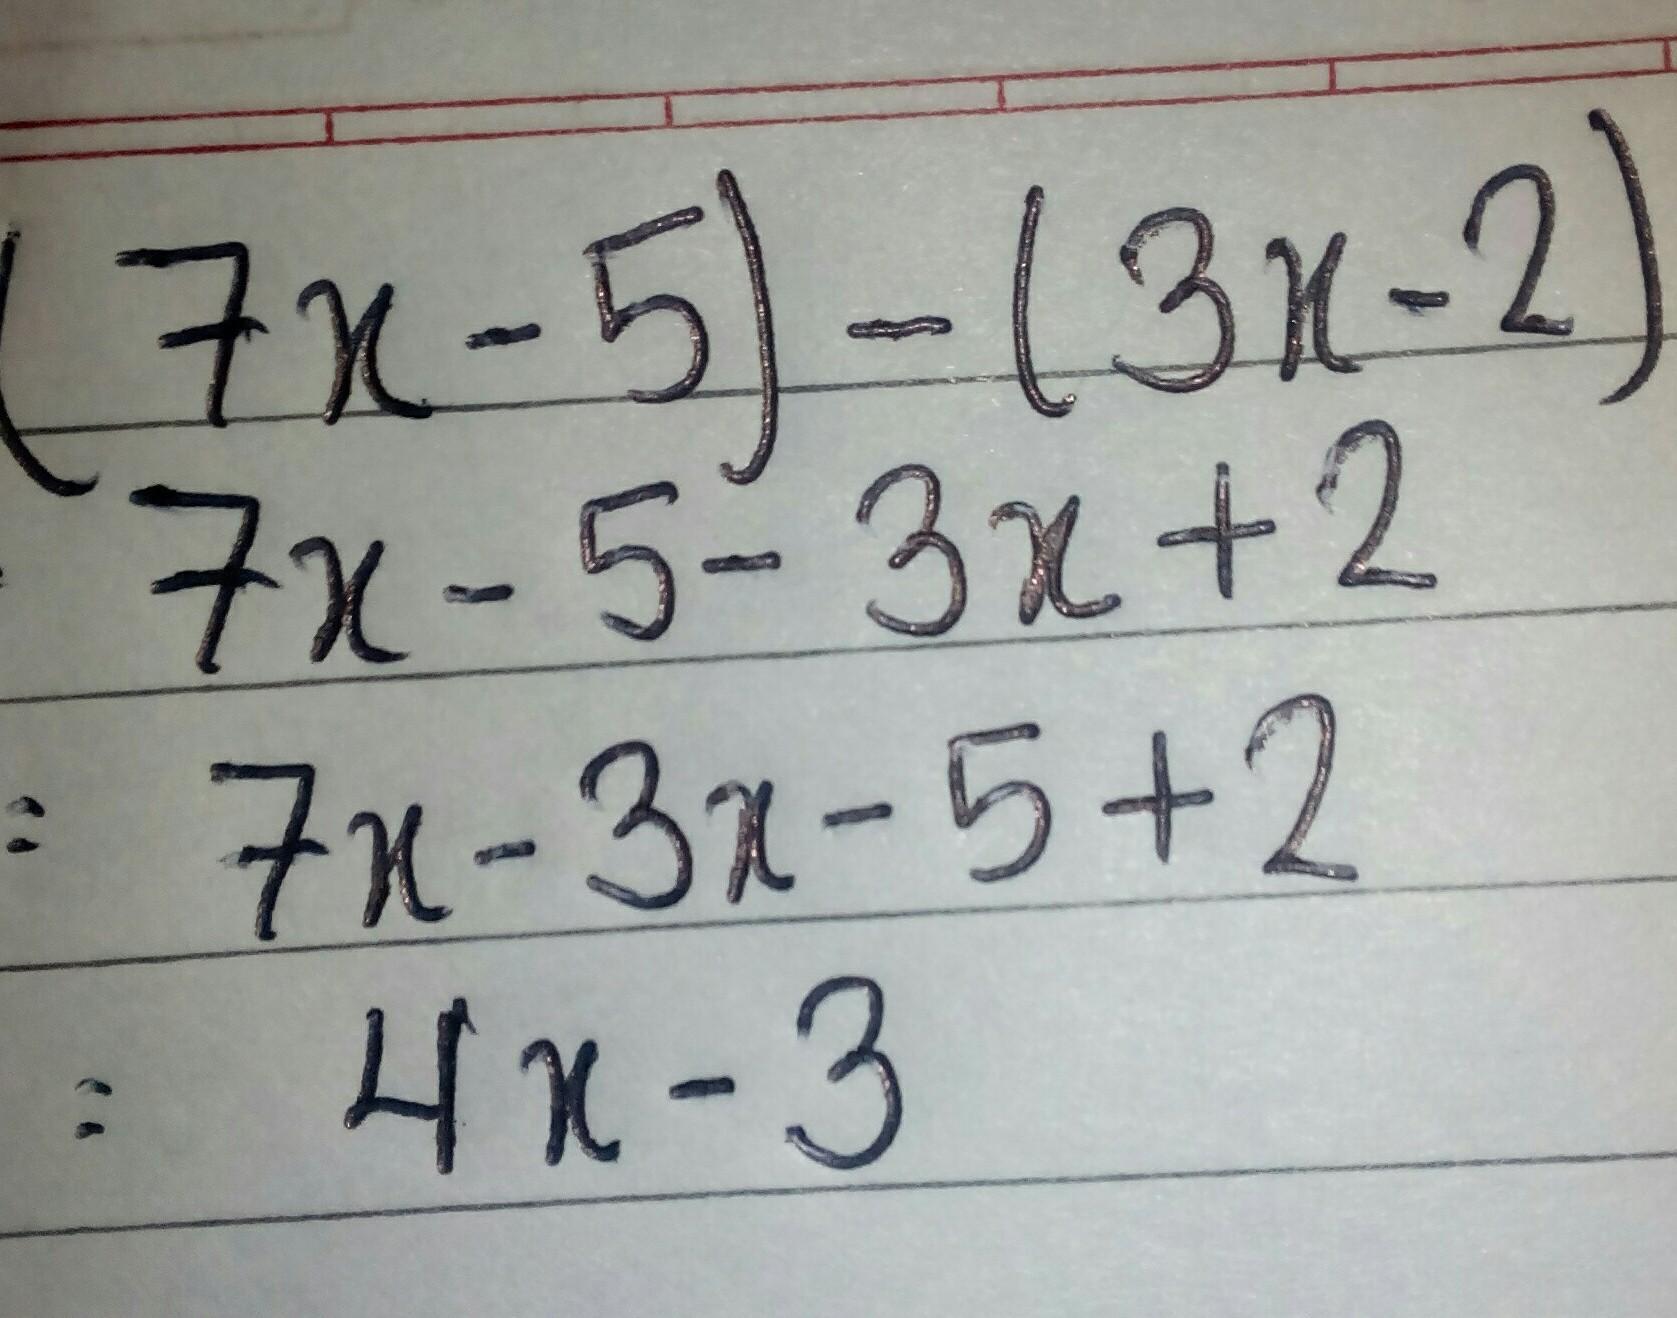 (7x-5)-(3x-2)
= 7x-5-3x+2
= 7x-3x-5+2
= 4x-3